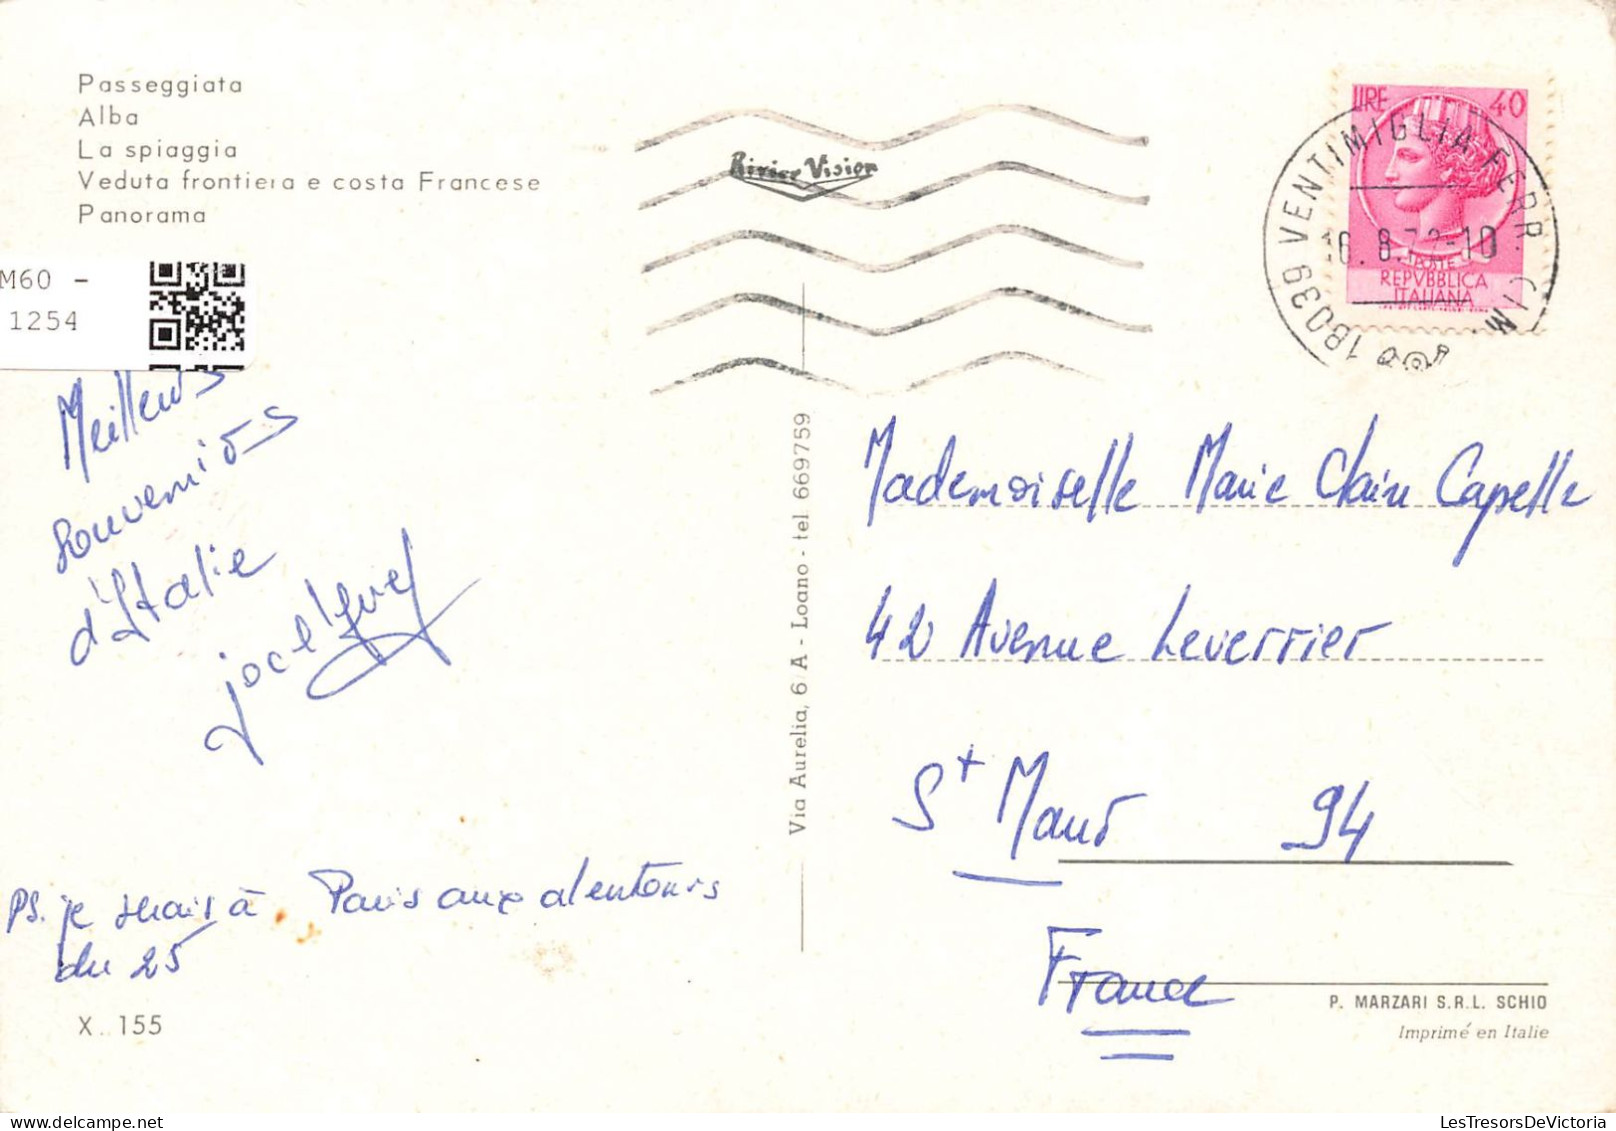 Passeggiata
Alba
La spiaggia
Veduta frontiera e costa Francese
Panorama
M60 -
1254
LIRE 40
POSTE
REPVBBLICA
ITALIANA
18039 VENTIMIGLIA FERR. CIM.
16.8.72-10
Meilleurs
souvenirs
d'Italie
PS. je serais à Paris aux alentours
du 25
X.. 155
Via Aurelia, 6/A - Loano - tel 669759
Mademoiselle Marie Claire Capelle
42 Avenue Leverrier
St Maur 94
France
P. MARZARI S.R.L. SCHIO
Imprimé en Italie
LesTresorsDeVictoria